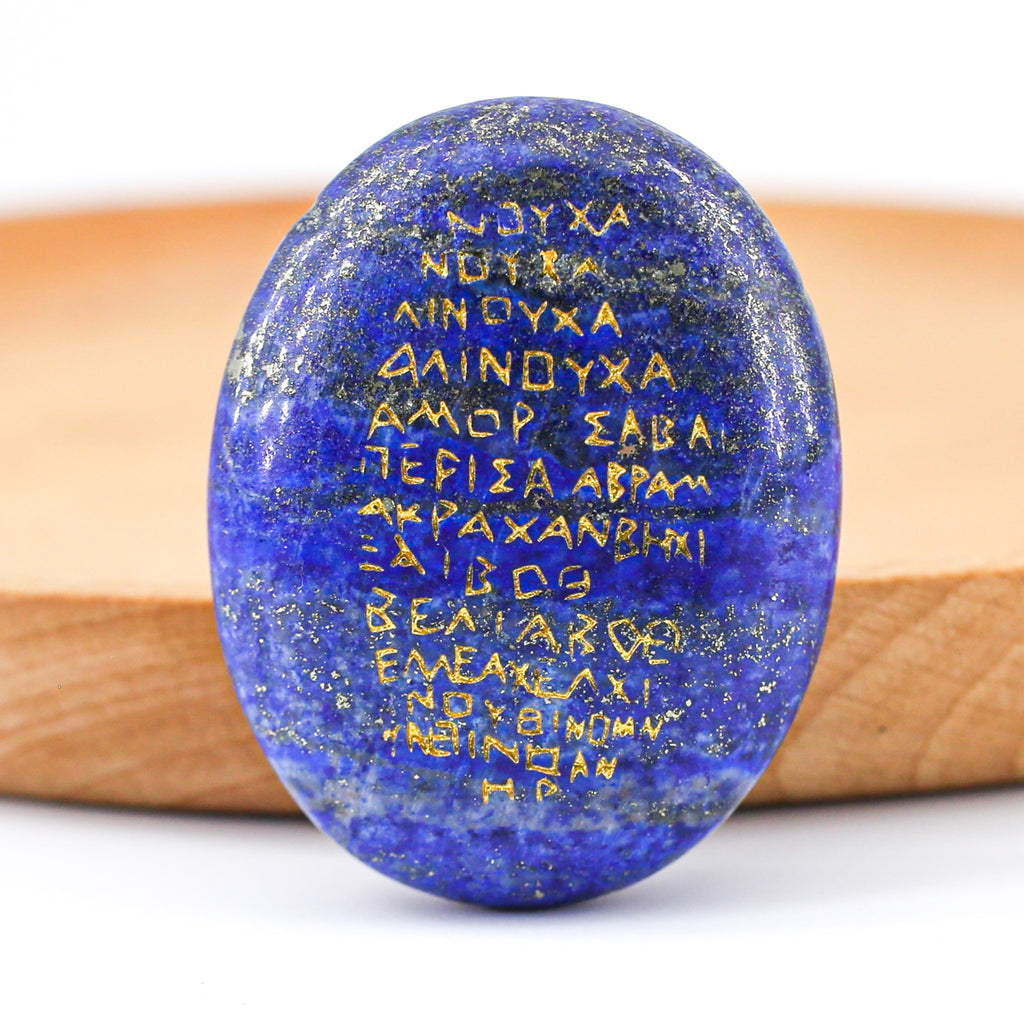 ΝΟΥΧΑ
ΝΟΥΧΑ
ΛΙΝΟΥΧΑ
ΑΛΙΝΟΥΧΑ
ΑΜΟΡ ΣΑΒΑΙ
ΠΕΡΙΣΑ ΑΒΡΑΜ
ΑΚΡΑΧΑΝΒΗΧΙ
ΞΑΙΒΟΘ
ΒΕΛΙΑΒΟΘ
ΕΜΕΑΧΕΛΧΙ
ΝΟΥΘΙΝΟΜΝ
ΗΡ